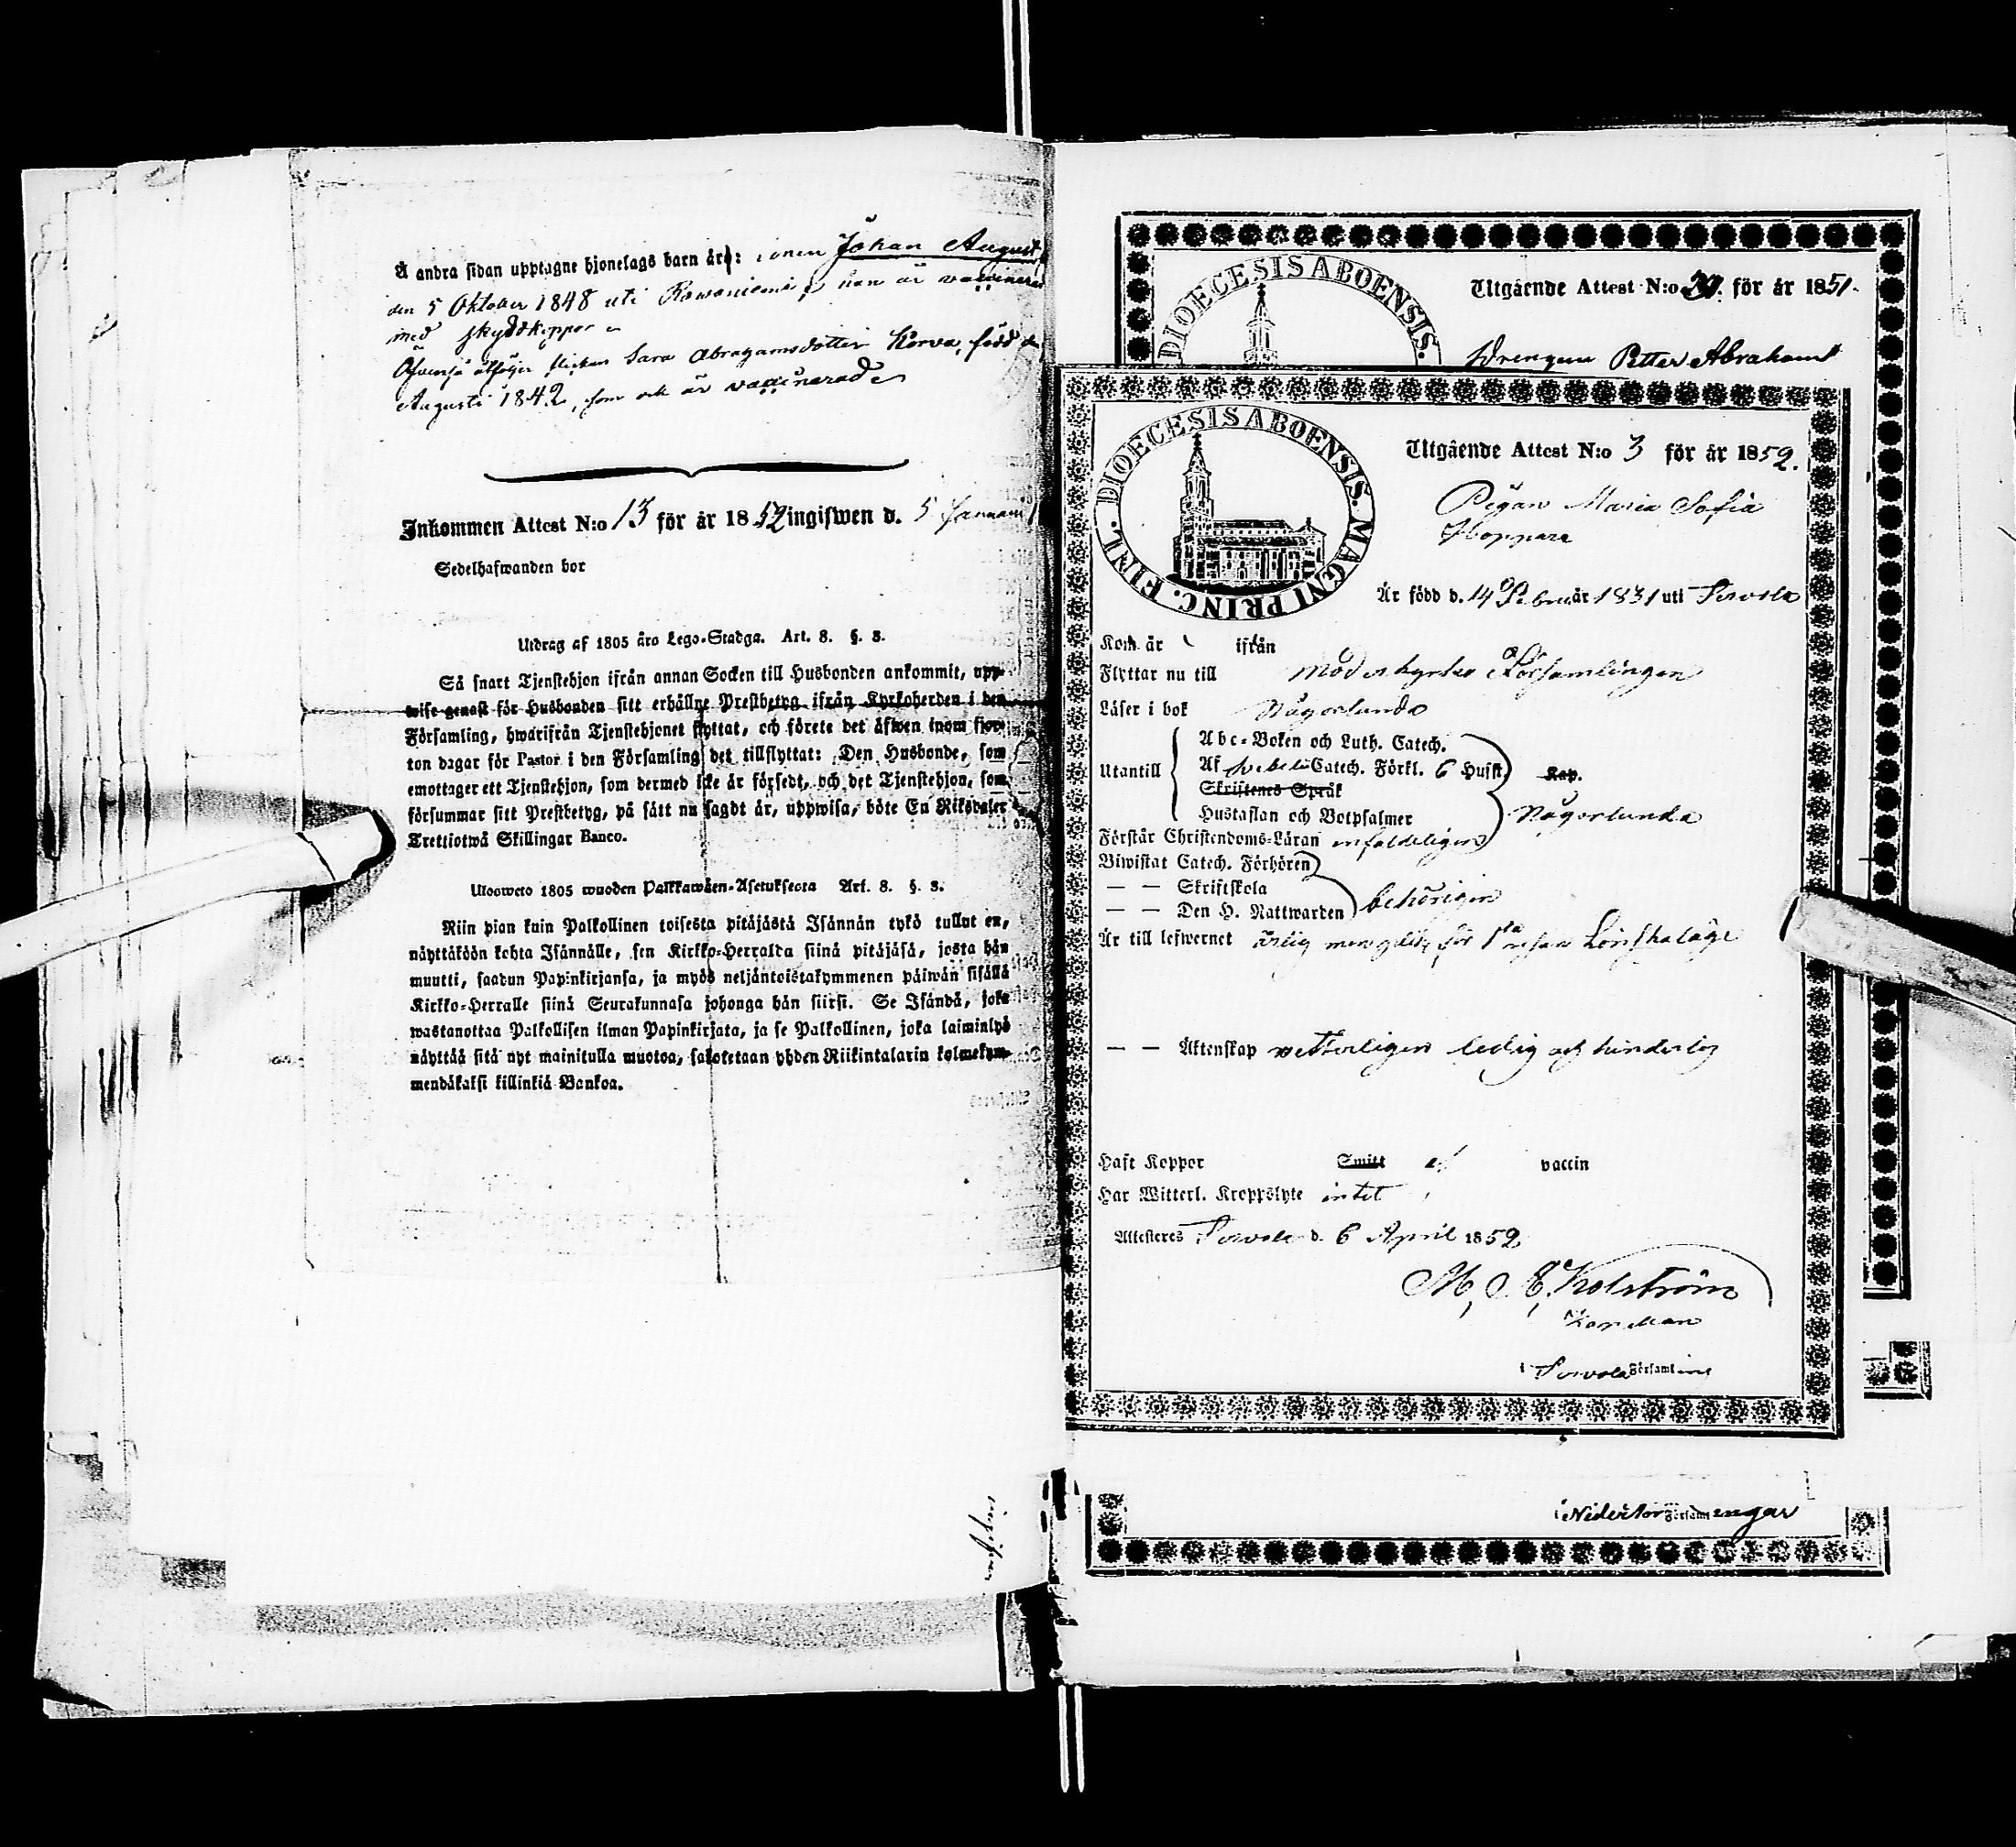 Å andra sidan upptagne hjonelags barn äro: sonen Johan August
den 5 Oktober 1848 uti Rowaniemi, han är vaccinerad
med skyddkoppor
Äfvenså åtföljer flickan Sara Abrahamsdotter Korva, född d
Augusti 1842, som ock är vaccinerad
Inkommen Attest N:o 13 för år 1852 ingifwen d. 5 Januari
Sedelhafwanden bor
Utdrag af 1805 års Lego-Stadga. Art. 8. §. 3.
Så snart Tjenstehjon ifrån annan Socken till Husbonden ankommit, upp-
wise genast för Husbonden sitt erhållne Prestbetyg ifrån Kyrkoherden i den
Församling, hwarifrån Tjenstehjonet flyttat, och förete det äfwen inom fjor-
ton dagar för Pastor i den Församling det tillflyttat: Den Husbonde, som
emottager ett Tjenstehjon, som dermed icke är försedt, och det Tjenstehjon, som
försummar sitt Prestbetyg, på sätt nu sagdt är, uppwisa, böte En Riksdaler
Trettiotwå Skillingar Banco.
Uloosweto 1805 wuoden Palkkawäen-Asetuksesta Art. 8. §. 3.
Niin pian kuin Palkollinen toisesta pitäjästä Isännän tykö tullut on,
näyttäköön kohta Isännälle, sen Kirkko-Herralda siinä pitäjäsä, josta hän
muutti, saadun Papinkirjansa, ja myös neljäntoistakymmenen päiwän sisällä
Kirkko-Herralle siinä Seurakunnasa johonga hän siirsi. Se Isändä, joka
wastanottaa Palkollisen ilman Papinkirjata, ja se Palkollinen, joka laiminlyö
näyttää sitä nyt mainitulla muotoa, sakotetaan yhden Riikintalarin kolmekym-
mendäkaksi killinkiä Bankoa.
DIOECESIS ABOENSIS.
Utgående Attest N:o för år 1851.
Drengen Petter Abraham
DIOECESIS ABOENSIS. MAGNI PRINC. FINL.
Utgående Attest N:o 3 för år 1852.
Pigan Maria Sofia
Hoppare
Är född d. 14 Februar 1831 uti Terwola
Kom år ifrån
Flyttar nu till Moderkyrko Församlingen
Läser i bok Någorlunda
Utantill
Abc-Boken och Luth. Catech.
Af Svebeli Catech. Förkl. 6 Husst. Kap.
Skriftenes Språk
Hustaflan och Botpsalmer Någorlunda
Förstår Christendoms-Läran enfaldeligen
Biwistat Catech. Förhören
— — Skriftskola
— — Den H. Nattwarden behörigen
Är till lefwernet ärlig men för 1sta resan Lönskaläge
— — Äktenskap wetterligen ledig och hinderlös
Haft Koppor Smitt af vaccin
Har Witterl. Kroppslyte intet
Attesteres Terwola d. 6 April 1852
Holström
i Terwola Församling
i Neder Församlingar